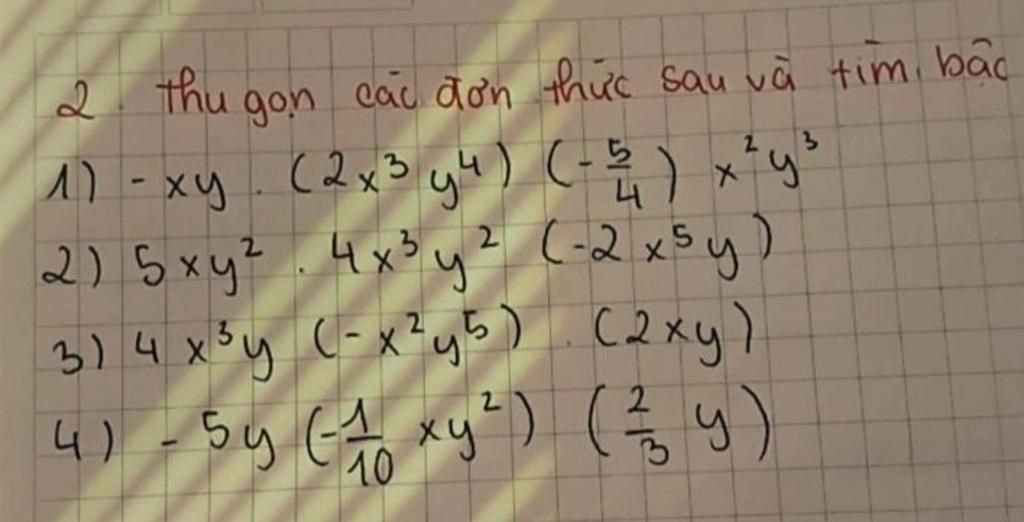 2. Thu gọn các đơn thức sau và tìm bậc
1) -xy . (2x³y⁴) (-5/4) x²y³
2) 5xy² . 4x³y² (-2x⁵y)
3) 4x³y (-x²y⁵) . (2xy)
4) -5y (-1/10 xy²) (2/3 y)